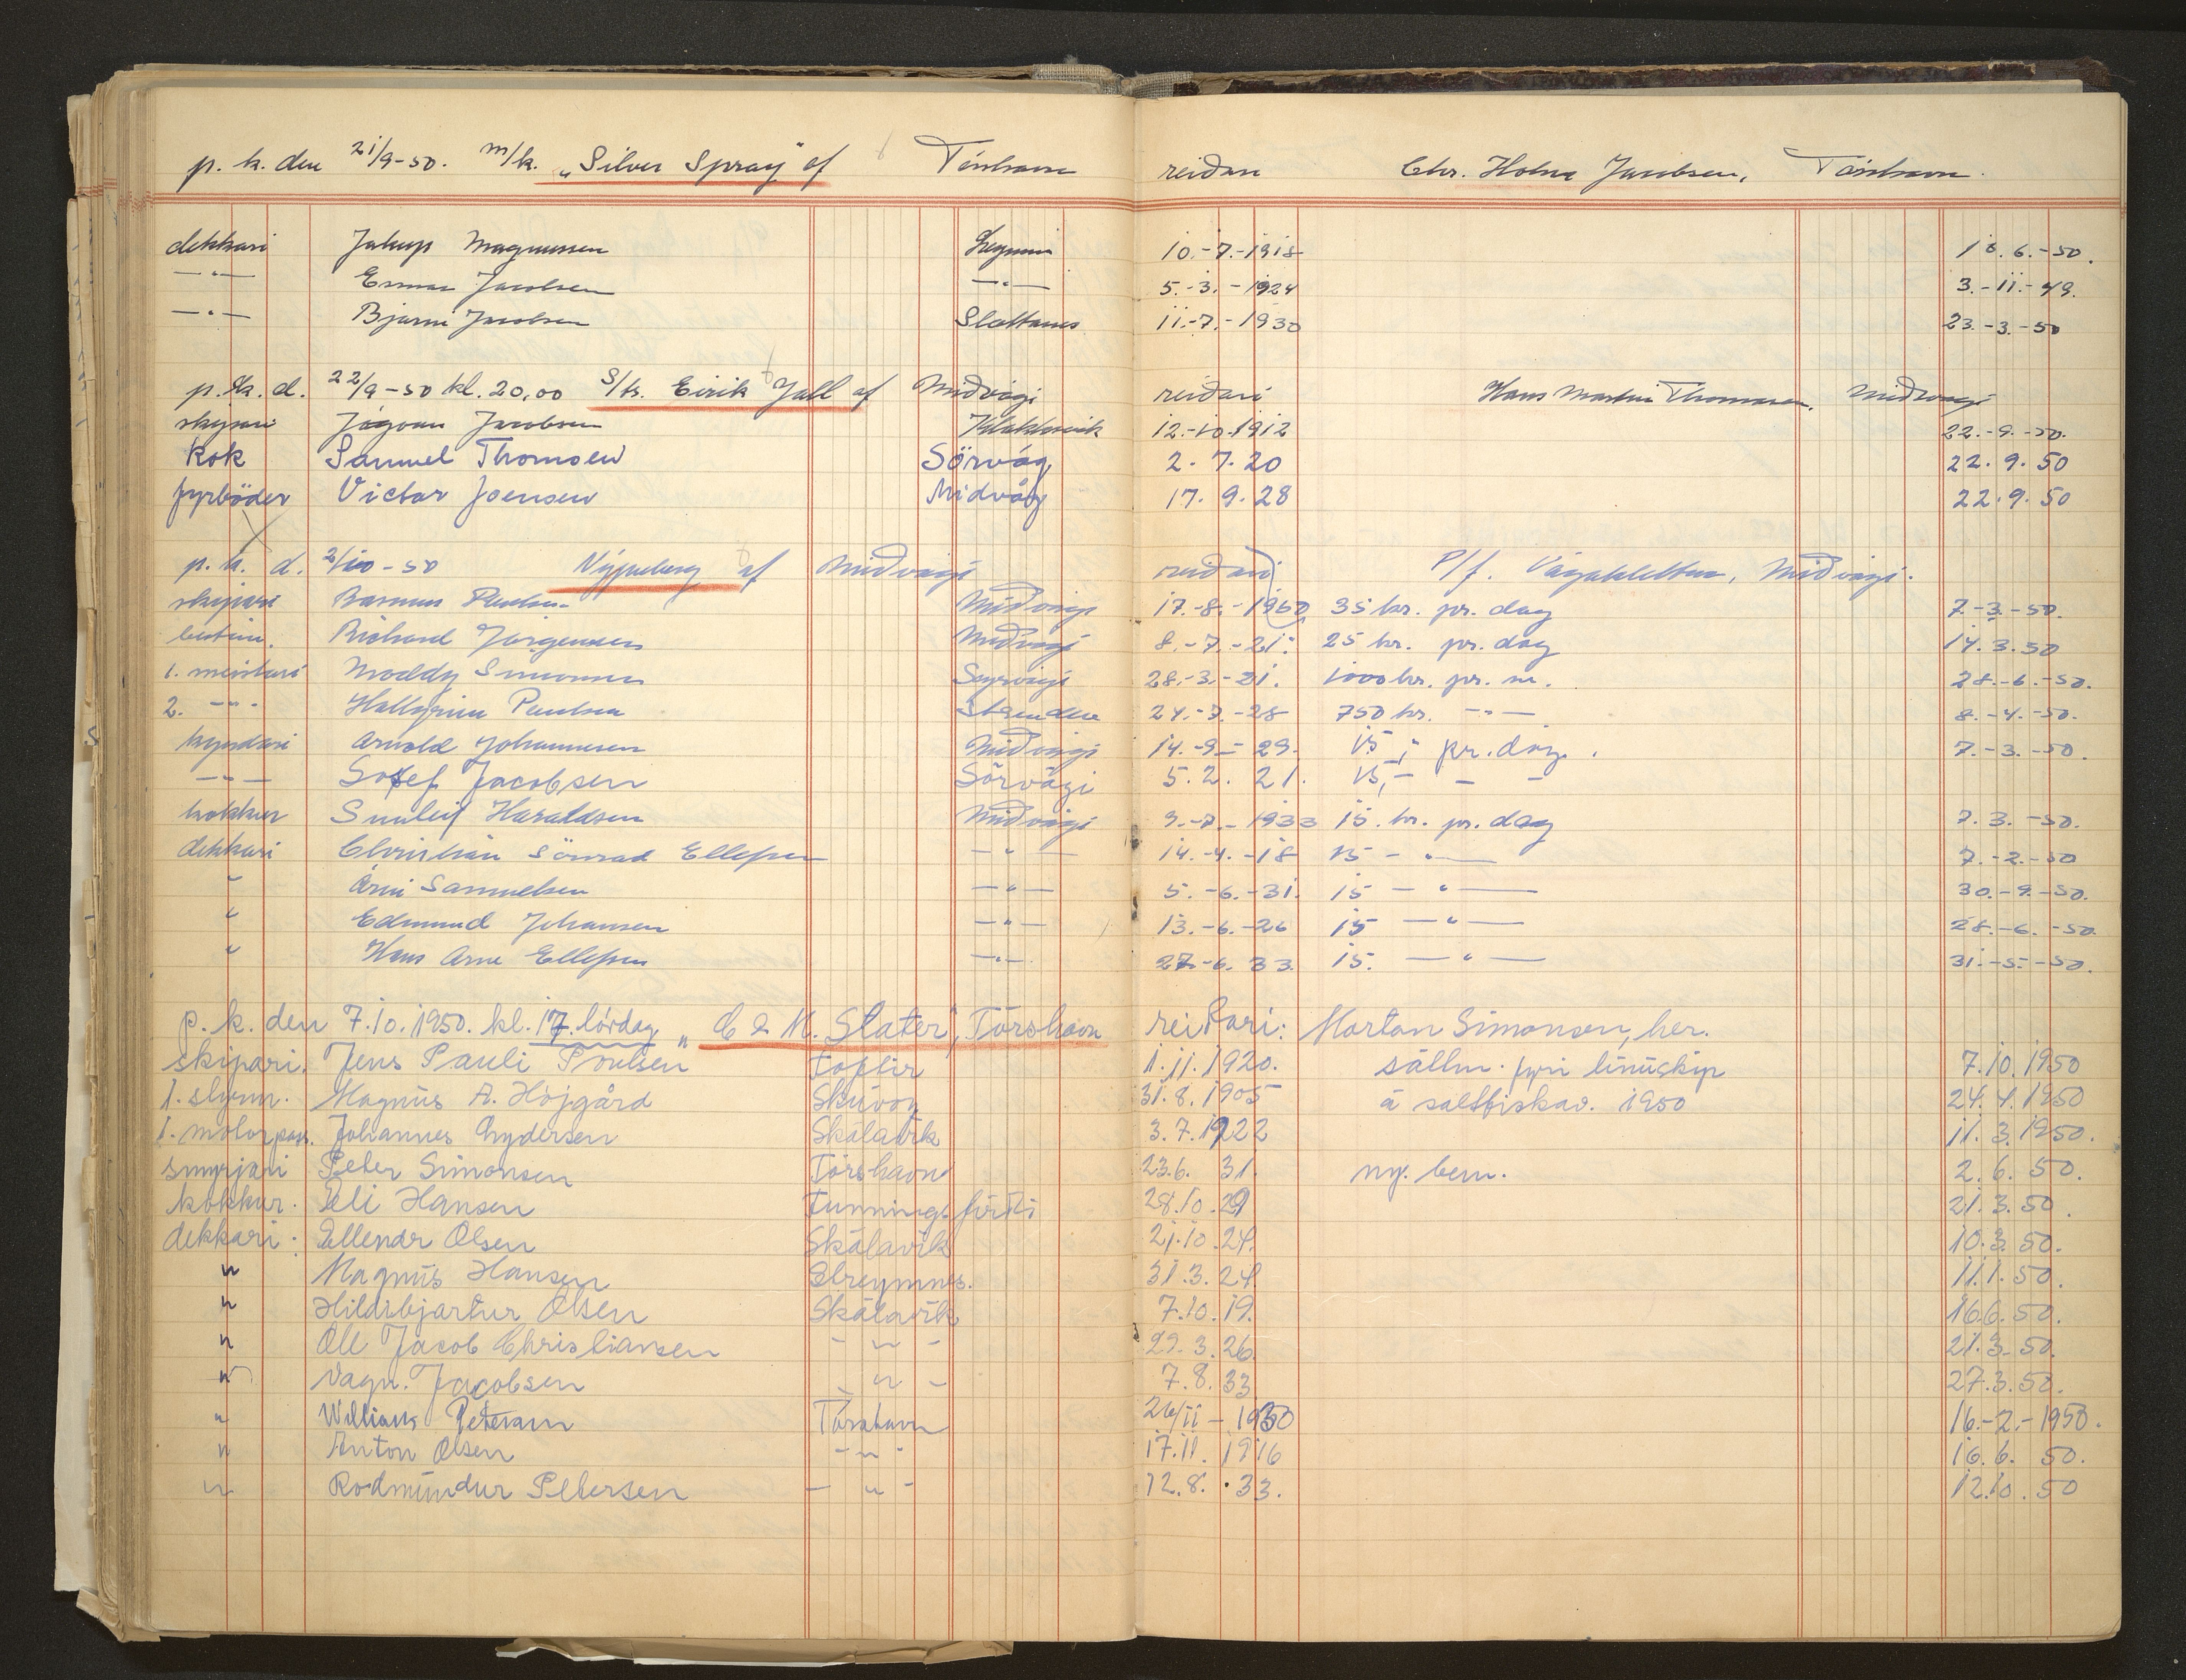 p. k. den 21/9-50. m/k. "Silver Spray" af Tórshavn reiðari Chr. Holm Jacobsen, Tórshavn.
dekkari Jakup Magnussen 10.-7.-1918 10.6.-50.
—"— Jacobsen —"— 5.-3.-1924 3.-11.-49.
—"— Bjarni Jacobsen Slættanes 11.-7.-1930 23.-3.-50
p. k. d. 22/9-50 kl. 20,00 S/tr. Eirik Jall af Miðvági reiðari Hans Martin Thomasen, Miðvági
skipari Jógvan Jacobsen Klakksvik 12.-10.1912 22.-9.-50.
kok Samuel Thomsen Sörvág 2. 7. 20 22. 9. 50
fyrböder Victor Joensen Midvåg 17. 9. 28 22. 9. 50
p. k. d. 2/10-50 Nýpuberg af Miðvági reiðari P/f. Vágaklettur, Miðvági.
skipari Rasmus Miðvági 17.-8.- 35 kr. pr. dag 7.-3.-50.
bestim. Richard Jörgensen Miðvági 8.-7.-21. 25 kr. pr. dag 14.3.50
1. meistari Noddy Simonsen Sørvági 28.-3.-21. 1000 kr. pr. m. 28.-6.-50.
2. -"- Hallgrim Poulsen Strendur 24.-7.-28 750 kr. -"— 8.-4.-50.
kyndari Arnold Johannesen Miðvági 14.-9.-29. 15,- pr. dag. 7.-3.-50.
—"— Sofef Jacobsen Sörvági 5. 2. 21. 15,- - - 
kokkur Sunleif Haraldsen Miðvági 9.-7.-1933 15. kr. pr. dag 7. 3.-50.
dekkari Christian Sönrad Ellefsen —"— 14.-4.-18 15 -"— 7.-2.-50
" Árni Samuelsen —"— 5.-6.-31. 15 —"— 30.-9.-50.
" Edmund Johansen —"— 13.-6.-26 15 —"— 28.-6.-50.
" Hans Arne Ellefsen —"— 27.-6. 33. 15. —"— 31.-5.-50.
p. k. den 7.10.1950. kl. 17. lördag "C & M. Slater", Tórshavn reiðari: Mortan Simonsen, her.
skipari. Jens Pauli Poulsen Toftir 1.11.1920. sállm. fyri línuskip 7.10.1950
1. stýrm. Magnús A. Højgård Skúvoy 31.8.1905 á saltfiskav. 1950 24.4.1950
1. motorpass. Johannes Lydersen Skálavík 3.7.1922 11.3.1950.
smyrjari Peter Simonsen Tórshavn 23.6. 31. ny. bem. 2.6. 50.
kokkur. Eli Hansen Funningsfirði 28.10.29 21.3.50.
dekkari: Ellendr Olsen Skálavík 21.10.24. 10.3.50.
" Magnús Hansen Streymnes. 31.3.24 11.1.50.
" Hildibjartur Olsen Skálavík 7.10.19. 16.6.50.
" Ole Jacob Christiansen - " - 29.3.26. 21.3.50.
" Vagn. Jacobsen - " - 7.8.33 27.3.50.
" William Petersen Tórshavn 26/11-1930 16.-2.-1950.
" Anton Olsen -"- 17.11.1916 16.6. 50.
" Rodmundur Petersen - " - 12.8. 33. 12.10.50